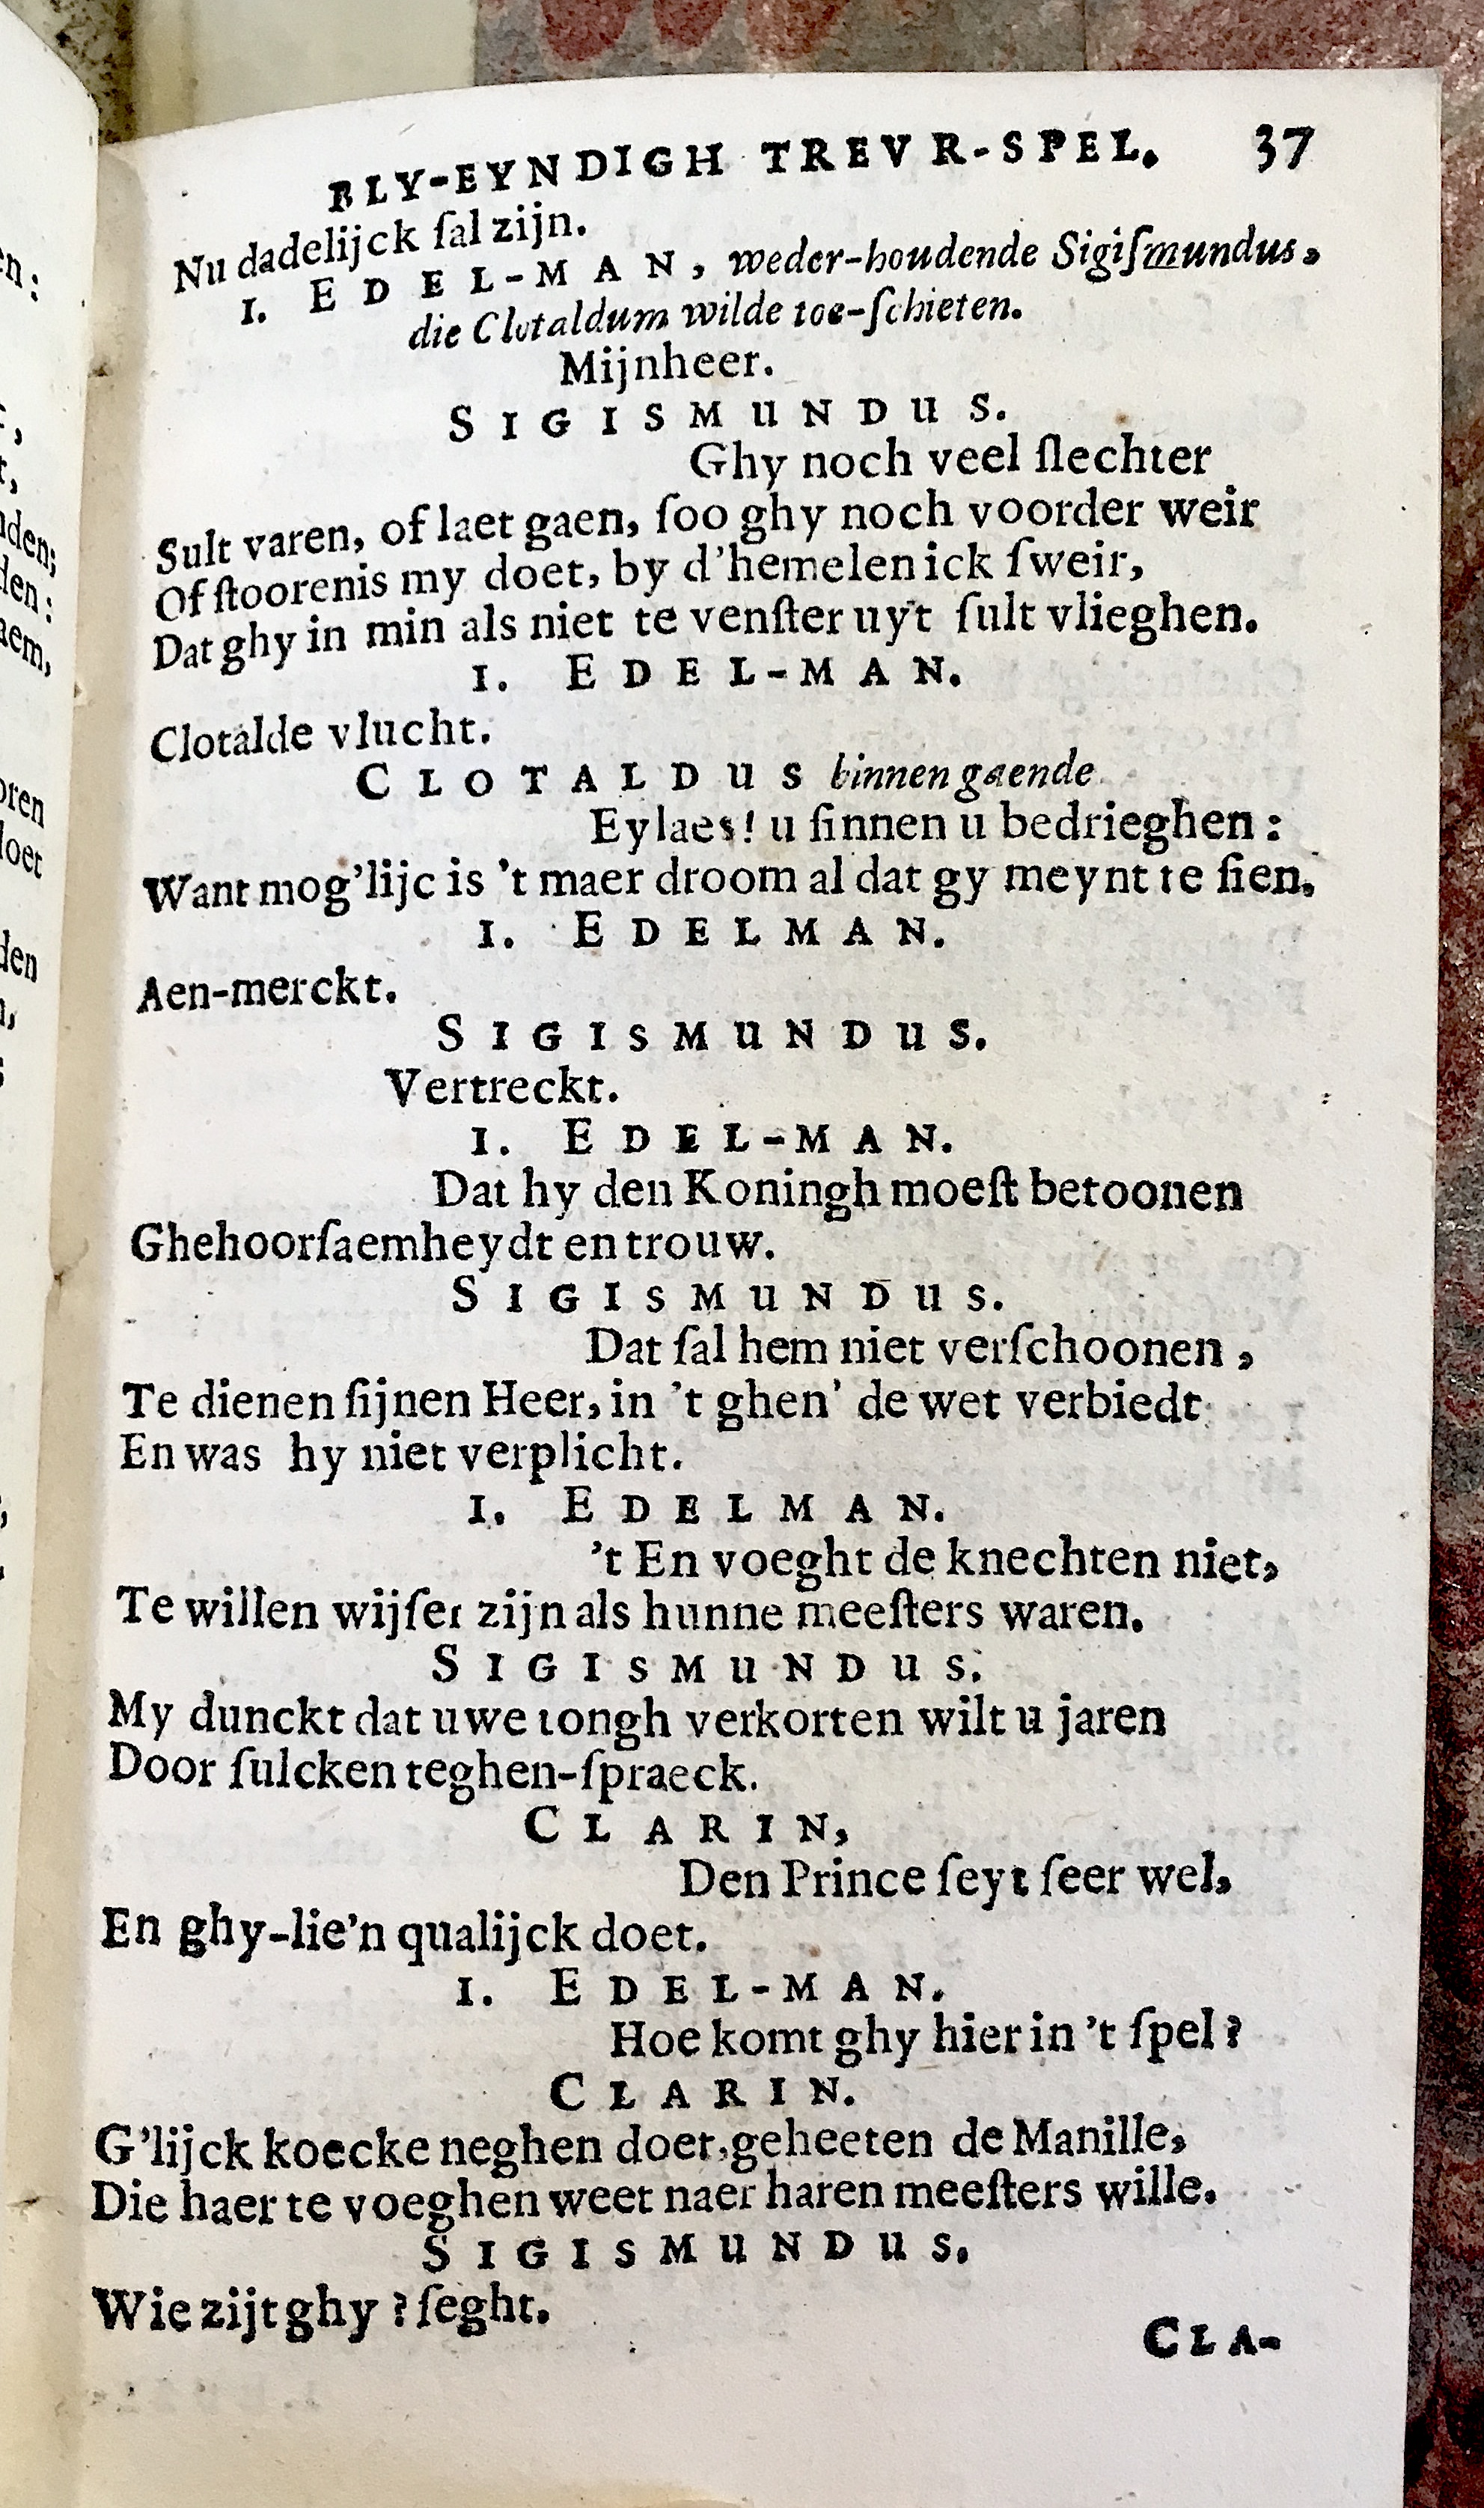 BLY-EYNDIGH TREVR-SPEL. 37
Nu dadelijck ſal zijn.
I. EDEL-MAN, weder-houdende Sigiſmundus,
die Clotaldum wilde toe-ſchieten.
Mijnheer.
SIGISMUNDUS.
Ghy noch veel ſlechter
Sult varen, of laet gaen, ſoo ghy noch voorder weir
Of ſtoorenis my doet, by d'hemelen ick ſweir,
Dat ghy in min als niet te venſter uyt ſult vlieghen.
I. EDEL-MAN.
Clotalde vlucht.
CLOTALDUS binnen gaende
Eylaes! u ſinnen u bedrieghen:
Want mog'lijc is 't maer droom al dat gy meynt te ſien.
I. EDELMAN.
Aen-merckt.
SIGISMUNDUS.
Vertreckt.
I. EDEL-MAN.
Dat hy den Koningh moeſt betoonen
Ghehoorſaemheydt en trouw.
SIGISMUNDUS.
Dat ſal hem niet verſchoonen,
Te dienen ſijnen Heer, in 't ghen' de wet verbiedt
En was hy niet verplicht.
I. EDELMAN.
't En voeght de knechten niet,
Te willen wijſer zijn als hunne meeſters waren.
SIGISMUNDUS.
My dunckt dat uwe tongh verkorten wilt u jaren
Door ſulcken teghen-ſpraeck.
CLARIN,
Den Prince ſeyt ſeer wel,
En ghy-lie'n qualijck doet.
I. EDEL-MAN.
Hoe komt ghy hier in 't ſpel?
CLARIN.
G'lijck koecke neghen doet, geheeten de Manille,
Die haer te voeghen weet naer haren meeſters wille.
SIGISMUNDUS.
Wie zijt ghy? ſeght.
CLA-